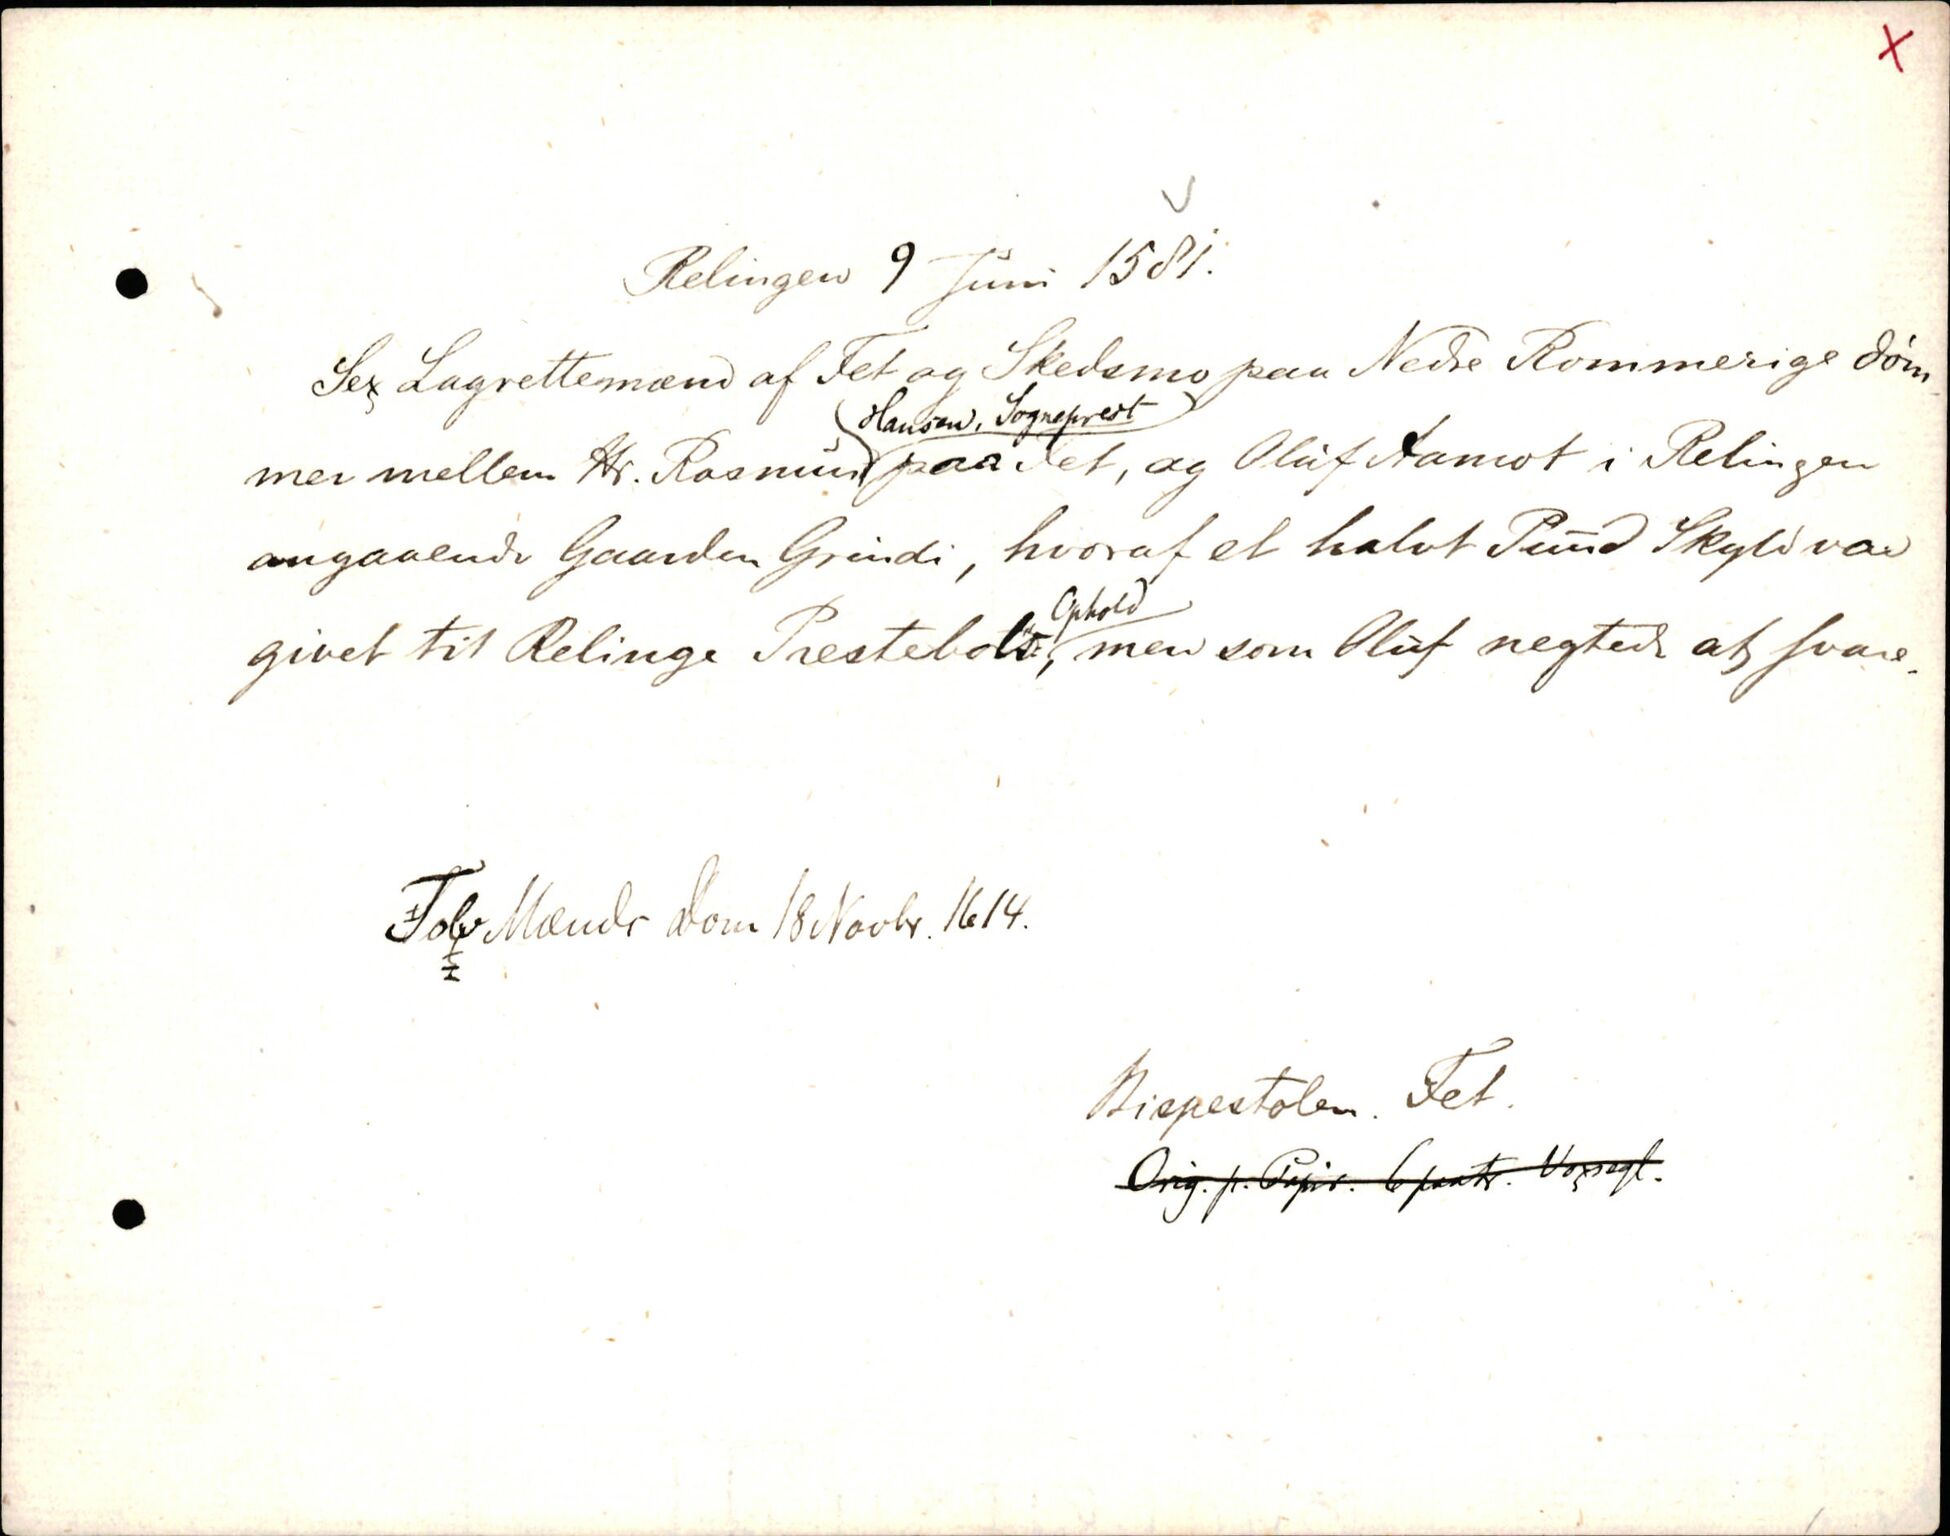 X
Relingen 9 Juni 1581.
Sex Lagrettemænd af Fet og Skedsmo paa Nedre Rommerige døm
Hansen, Sogneprest
mer mellem Hr. Rasmus paa Fet, og Oluf Aamot i Relingen
angaaende Gaarden Grindi, hvoraf et halvt Pund Skyld var
Ophold
givet til Relinge Prestebols, men som Oluf negtede at svare.
Tolv Mænds Dom 18 Novbr. 1614.
Bispestolen. Fet.
Orig. p. Papir. 6 paatr. Voxsegl.